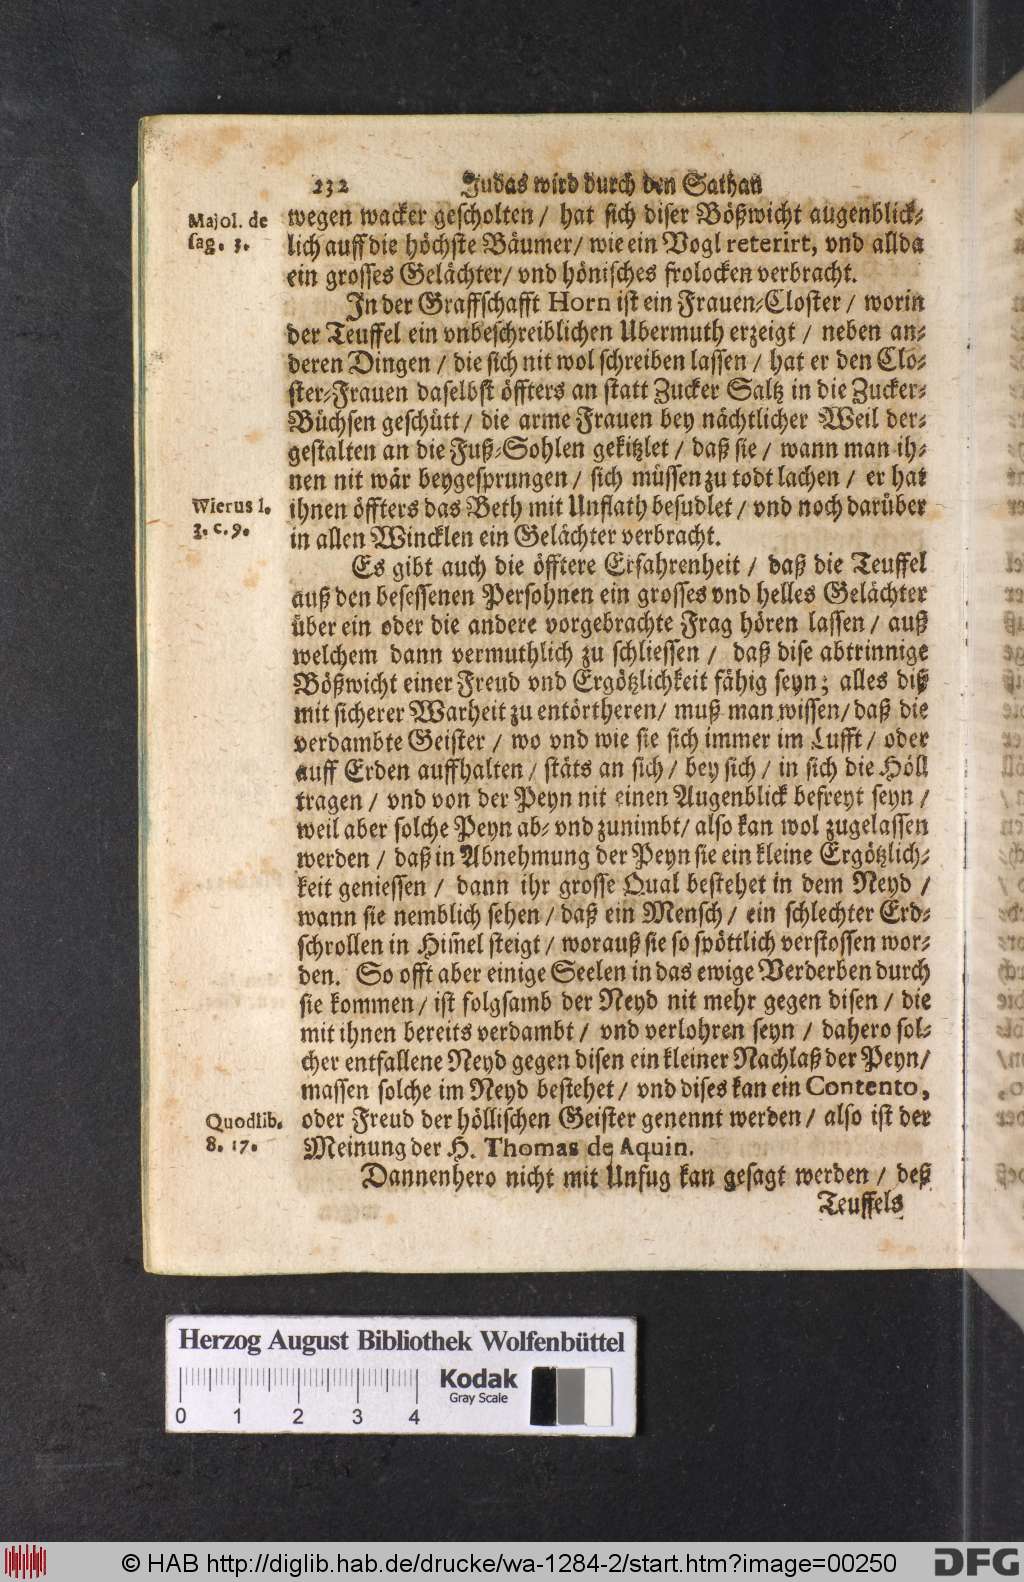 232 Judas wird durch den Sathan
Majol. de
sag. 3.
wegen wacker gescholten / hat sich diser Bößwicht augenblick-
lich auff die höchste Bäumer / wie ein Vogl reterirt, vnd allda
ein grosses Gelächter / vnd hönisches frolocken verbracht.
In der Graffschafft Horn ist ein Frauen-Closter / worin
der Teuffel ein vnbeschreiblichen Ubermuth erzeigt / neben an-
deren Dingen / die sich nit wol schreiben lassen / hat er den Clo-
ster-Frauen daselbst öffters an statt Zucker Saltz in die Zucker-
Büchsen geschütt / die arme Frauen bey nächtlicher Weil der-
gestalten an die Fuß-Sohlen gekitzlet / daß sie / wann man ih-
nen nit wär beygesprungen / sich müssen zu todt lachen / er hat
Wierus l.
3. c. 9.
ihnen öffters das Beth mit Unflath besudlet / vnd noch darüber
in allen Wincklen ein Gelächter verbracht.
Es gibt auch die öfftere Erfahrenheit / daß die Teuffel
auß den besessenen Persohnen ein grosses vnd helles Gelächter
über ein oder die andere vorgebrachte Frag hören lassen / auß
welchem dann vermuthlich zu schliessen / daß dise abtrinnige
Bößwicht einer Freud vnd Ergötzlichkeit fähig seyn; alles diß
mit sicherer Warheit zu entörtheren / muß man wissen / daß die
verdambte Geister / wo vnd wie sie sich immer im Lufft / oder
auff Erden auffhalten / stäts an sich / bey sich / in sich die Höll
tragen / vnd von der Peyn nit einen Augenblick befreyt seyn /
weil aber solche Peyn ab- vnd zunimbt / also kan wol zugelassen
werden / daß in Abnehmung der Peyn sie ein kleine Ergötzlich-
keit geniessen / dann ihr grosse Qual bestehet in dem Neyd /
wann sie nemblich sehen / daß ein Mensch / ein schlechter Erd-
schrollen in Him̃el steigt / worauß sie so spöttlich verstossen wor-
den. So offt aber einige Seelen in das ewige Verderben durch
sie kommen / ist folgsamb der Neyd nit mehr gegen disen / die
mit ihnen bereits verdambt / vnd verlohren seyn / dahero sol-
cher entfallene Neyd gegen disen ein kleiner Nachlaß der Peyn /
massen solche im Neyd bestehet / vnd dises kan ein Contento,
Quodlib.
8. 17.
oder Freud der höllischen Geister genennt werden / also ist der
Meinung der H. Thomas de Aquin.
Dannenhero nicht mit Unfug kan gesagt werden / deß
Teuffels
Herzog August Bibliothek Wolfenbüttel
Kodak
Gray Scale
0 1 2 3 4
© HAB http://diglib.hab.de/drucke/wa-1284-2/start.htm?image=00250
DFG